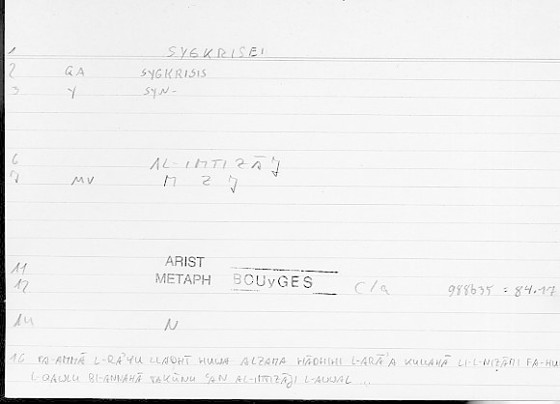 1 SYGKRISEI
2 GA SYGKRISIS
3 Y SYN-
6 AL-IMTIZĀǦ
7 MV M Z Ǧ
11 ARIST
12 METAPH BOUyGES C/a 988b35 : 84.17
14 N
16 FA-AMMĀ L-RA'YU LLADHĪ HUWA ALZAMA HĀDHIHI L-ARĀ'A KULLAHĀ LI-L-NIẒĀMI FA-HU
L-QAWLU BI-ANNAHĀ TAKŪNU ʿAN AL-IMTIZĀǦI L-AWWAL ...